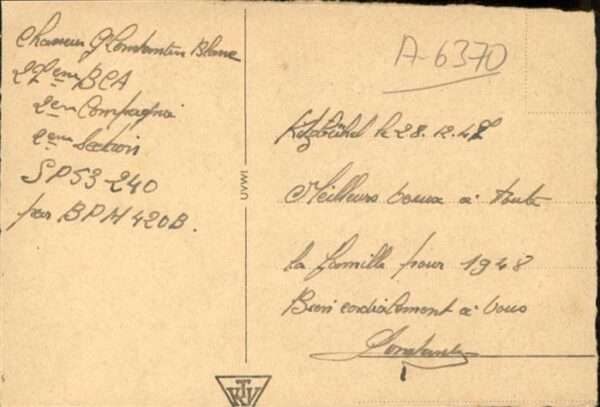 Chasseur G Constantin Blanc
27ème BCA
2em Compagnie
2ème Section
SP 53-240
par BPM 420B.
UVWI
A-6370
Kitzbühel le 28.12.47
Meilleurs voeux a toute
la famille pour 1948
Bien cordialement a vous
Constantin